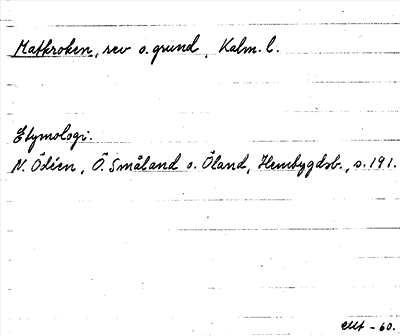 Matkroken, rev o. grund, Kalm. l.
Etymologi.
N. Ödéen, Ö. Småland o. Öland, Hembygdsb., s. 191.
-60.